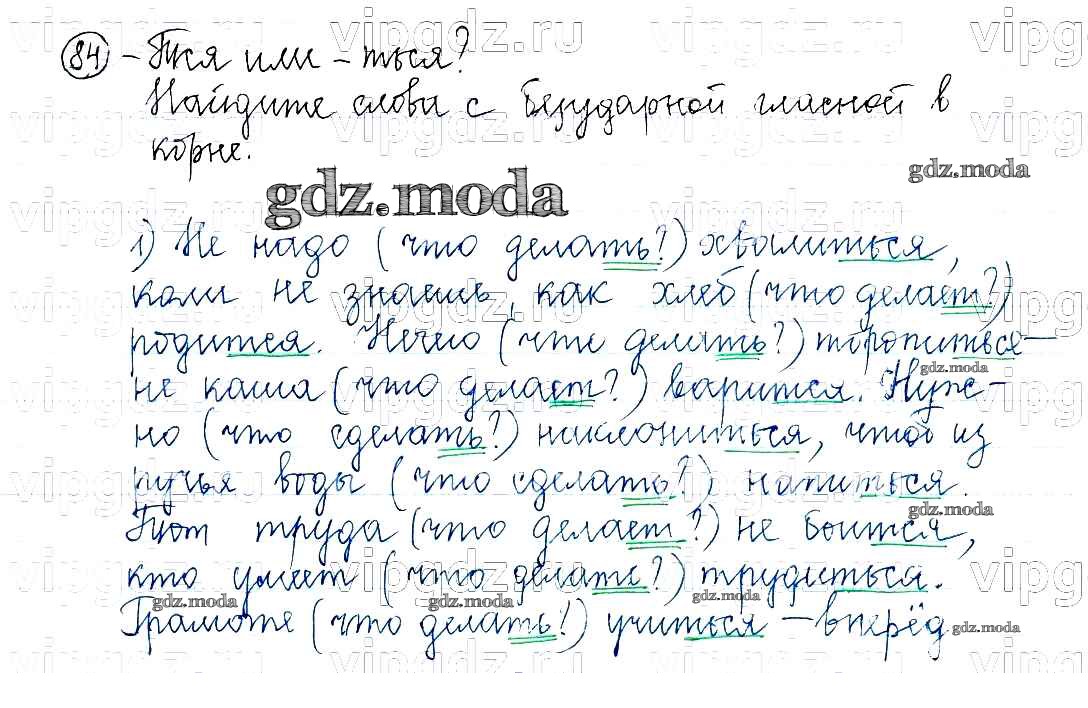 84 -Тся или -ться?
Найдите слова с безударной гласной в
корне.
gdz.moda
1) Не надо (что делать?) хвалиться,
коли не знаешь, как хлеб (что делает?)
родится. Нечего (что делать?) торопиться-
не каша (что делает?) варится. Нуж-
но (что сделать?) наклониться, чтоб из
ручья воды (что сделать?) напиться.
Тот труда (что делает?) не боится,
кто умеет (что делать?) трудиться.
Грамоте (что делать?) учиться - вперёд